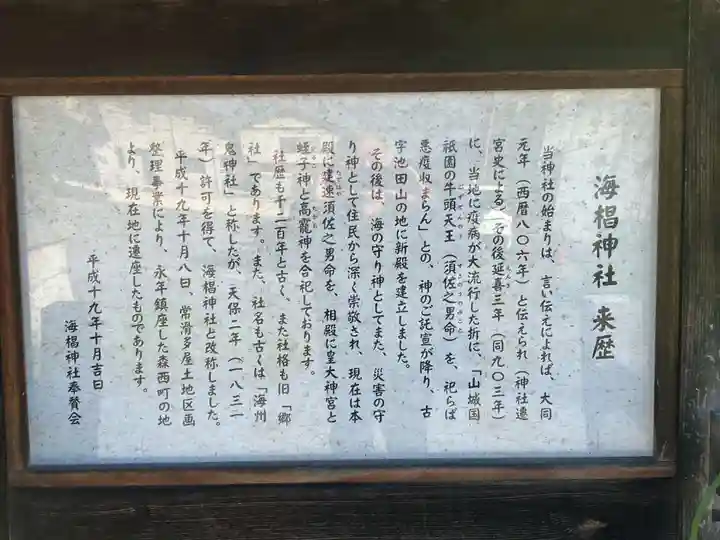 海椙神社 来歴
当神社の始まりは、言い伝えによれば、大同
元年（西暦八〇六年）と伝えられ（神社遺
宮史による）その後延喜三年（同九〇三年）
に、当地に疫病が大流行した折に、「山城国
祇園の牛頭天王（須佐之男命）を、祀らば
悪疫収まらん」との、神のご託宣が降り、古
宇池田山の地に新殿を建立しました。
その後は、海の守り神としてまた、災害の守
り神として住民から深く崇敬され、現在は本
殿に建速須佐之男命を、相殿に皇大神宮と
蛭子神と高龗神を合祀しております。
社歴も千二百年と古く、また社格も旧「郷
社」であります。また、社名も古くは「海州
鬼神社」と称したが、天保二年（一八三一
年）許可を得て、海椙神社と改称しました。
平成十九年十月八日、常滑多屋土地区画
整理事業により、永年鎮座した森西町の地
より、現在地に遷座したものであります。
平成十九年十月吉日
海椙神社奉賛会